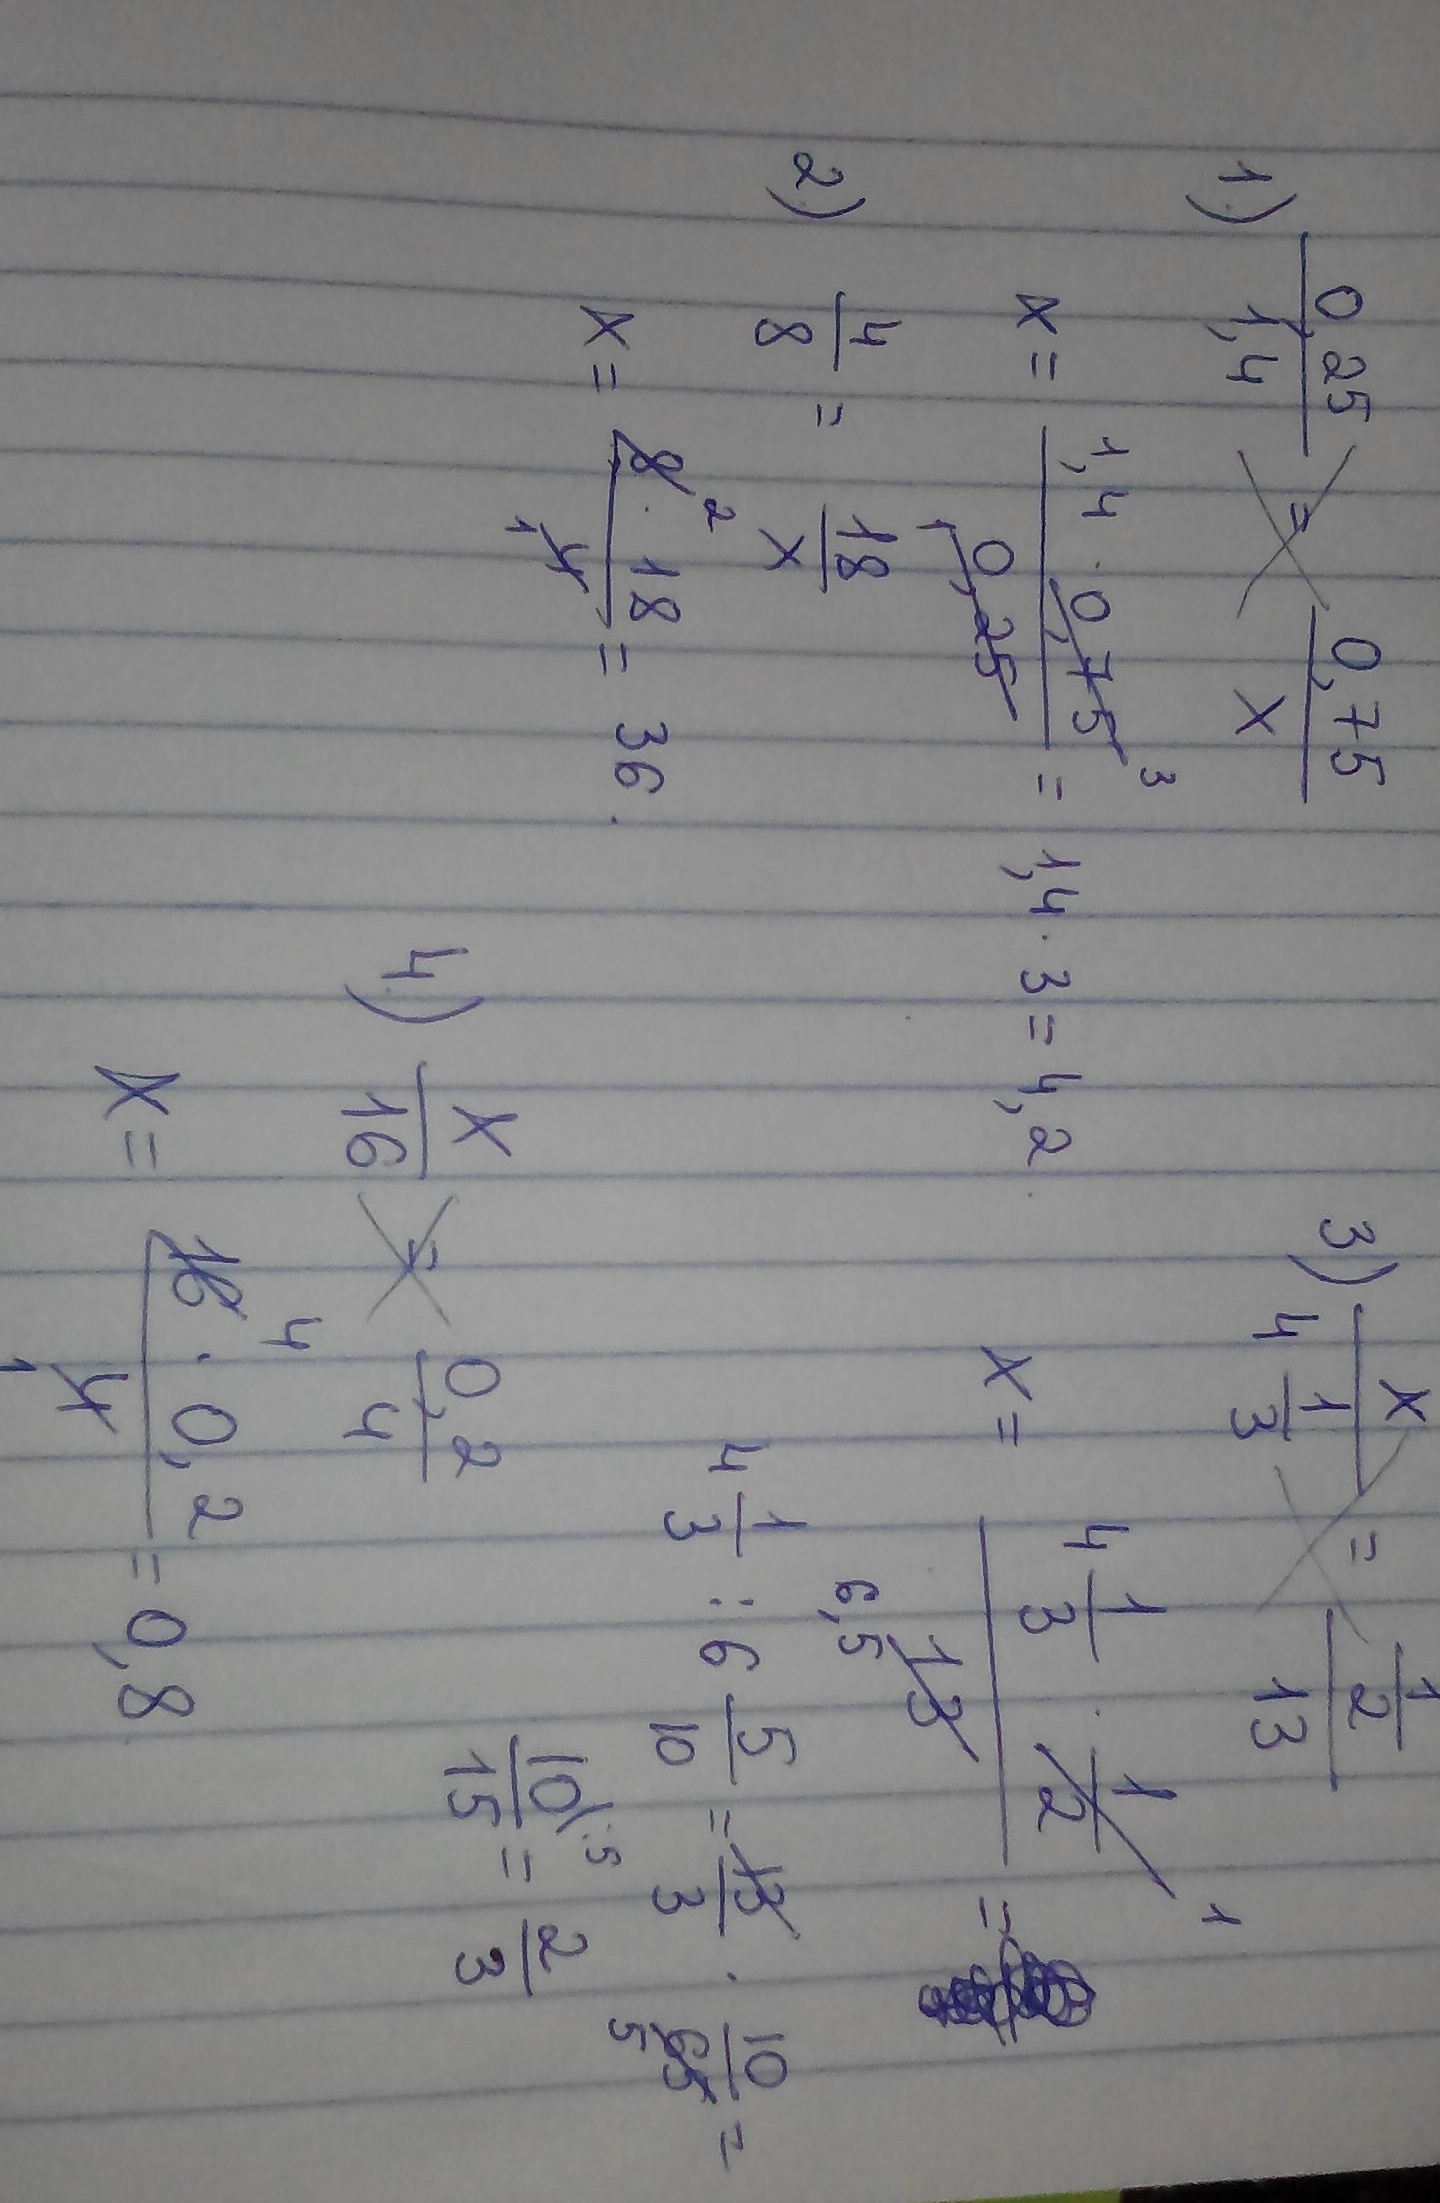 1) 0,25/1,4 = 0,75/x
x = 1,4 · 0,75 3 / 0,25 1 = 1,4 · 3 = 4,2
2) 4/8 = 18/x
x = 8 2 · 18 / 4 1 = 36.
3) x / 4 1/3 = 1/2 / 13
x = 4 1/3 · 1/2 1 / 13 6,5 =
4 1/3 : 6 5/10 = 13/3 · 10/65 5 =
10/15 (:5 = 2/3
4) x/16 = 0,2/4
x = 16 4 · 0,2 / 4 1 = 0,8